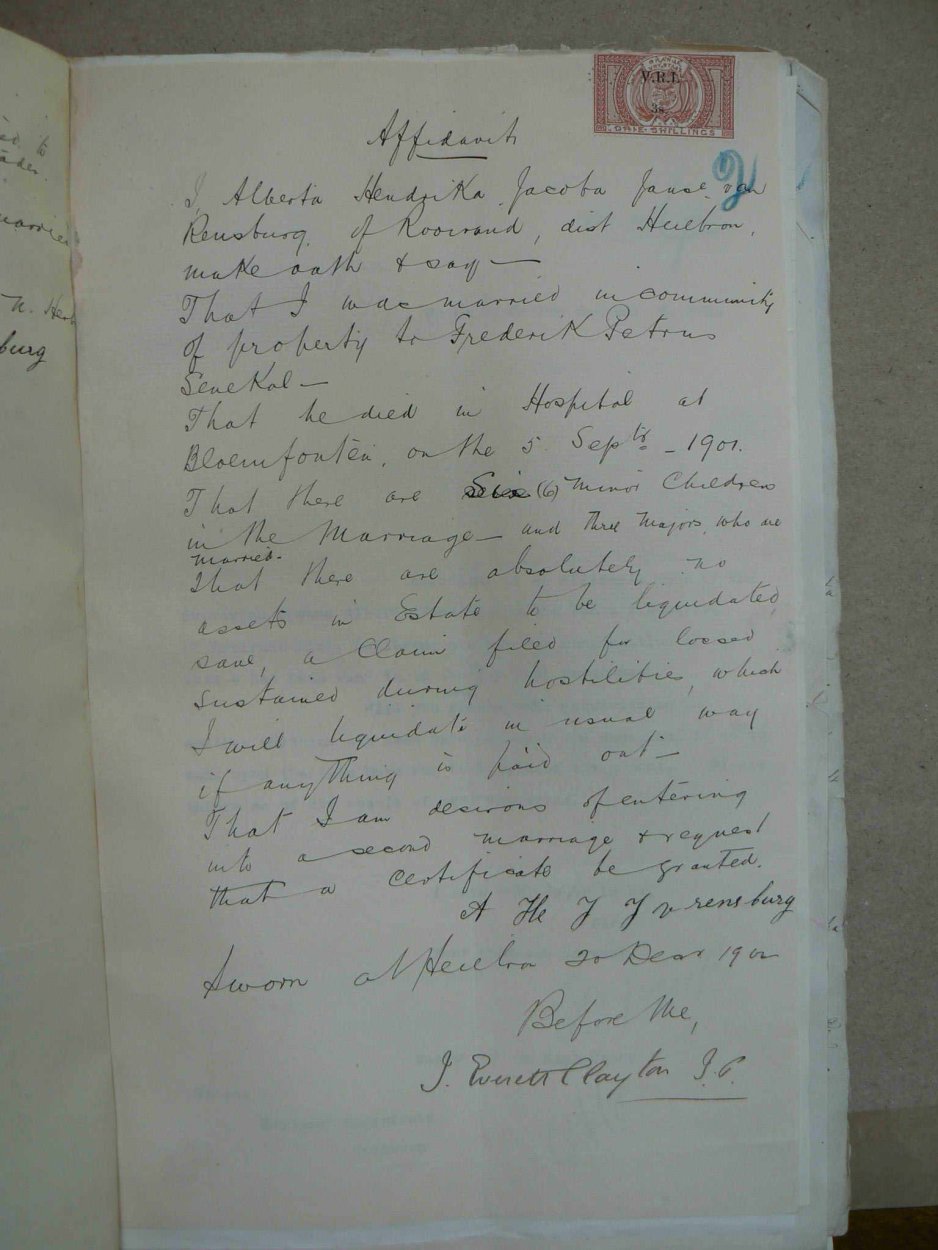 V.R.I.
3s.
DRIE SHILLINGS
Affidavit
2
I, Alberta Hendrika Jacoba Janse van
Rensburg, of Rooirand, dist Heilbron,
make oath & say —
That I was married in community
of property to Frederik Petrus
Senekal —
That he died in Hospital at
Bloemfontein, on the 5 Septr - 1901.
That there are Six (6) Minor Children
in the Marriage — and three Majors, who are
married.
That there are absolutely no
assets in Estate to be liquidated,
save, a Claim filed for losses
sustained during hostilities, which
I will liquidate in usual way
if anything is paid out —
That I am desirous of entering
into a second marriage & request
that a certificate be granted.
A H J J v rensburg
Sworn at Heilbron 20 Decr 1902
Before Me,
J. Everett Clayton J.P.
to
married
burg